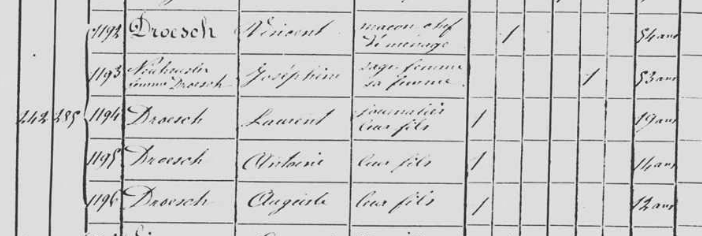 1192 Droesch Vincent maçon chef
de ménage 1 54 ans
1193 femme Droesch Joséphine sage femme
sa femme 1 53 ans
242 285 1194 Droesch Laurent journalier
leur fils 1 19 ans
1195 Droesch Antoine leur fils 1 14 ans
1196 Droesch Auguste leur fils 1 12 ans